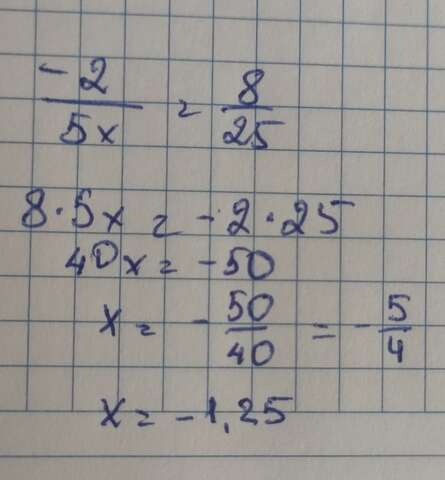 -2/5x = 8/25
8·5x = -2·25
40x = -50
x = -50/40 = -5/4
x = -1,25